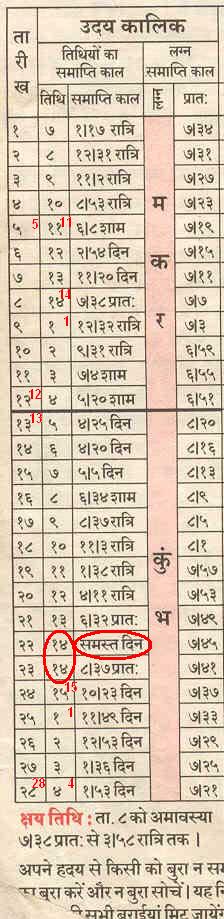 उदय कालिक
तारीख
तिथियों का समाप्ति काल
लग्न समाप्ति काल
तिथि
समाप्ति काल
लग्न
प्रात:
१ ७ १|१७ रात्रि ७|३४
२ ८ १२|३१ रात्रि ७|३१
३ ९ ११|२ रात्रि ७|२७
४ १० ८|५३ रात्रि ७|२३
५ 5 ११ 11 ६|८ शाम ७|१९
६ १२ २|५४ दिन ७|१५
७ १३ ११|२० दिन ७|११
८ १४ 14 ७|३८ प्रात: ७|७
९ १ 1 १२|३२ रात्रि ७|३
१० २ ९|३१ रात्रि ६|५९
११ ३ ७|४ शाम ६|५५
१२ 12 ४ ५|२० शाम ६|५१
मकर
१३ 13 ५ ४|२५ दिन ८|२०
१४ ६ ४|२० दिन ८|१६
१५ ७ ५|५ दिन ८|१३
१६ ८ ६|३४ शाम ८|९
१७ ९ ८|३७ रात्रि ८|५
१८ १० ११|३ रात्रि ८|१
१९ ११ १|३८ रात्रि ७|५७
२० १२ ४|११ रात्रि ७|५३
२१ १३ ६|३२ प्रात: ७|४९
२२ १४ समस्त दिन ७|४५
२३ १४ ८|३७ प्रात: ७|४१
२४ १५ 15 १०|२३ दिन ७|३७
२५ १ 1 ११|४९ दिन ७|३३
२६ २ १२|५३ दिन ७|२९
२७ ३ १|३६ दिन ७|२५
२८ 28 ४ 4 १|५३ दिन ७|२१
कुंभ
क्षय तिथि : ता. ८ को अमावस्या
७|३८ प्रात: से ३|५८ रात्रि तक ।
अपने हृदय से किसी को बुरा न सम
का बुरा करें और न बुरा सोचें । यह